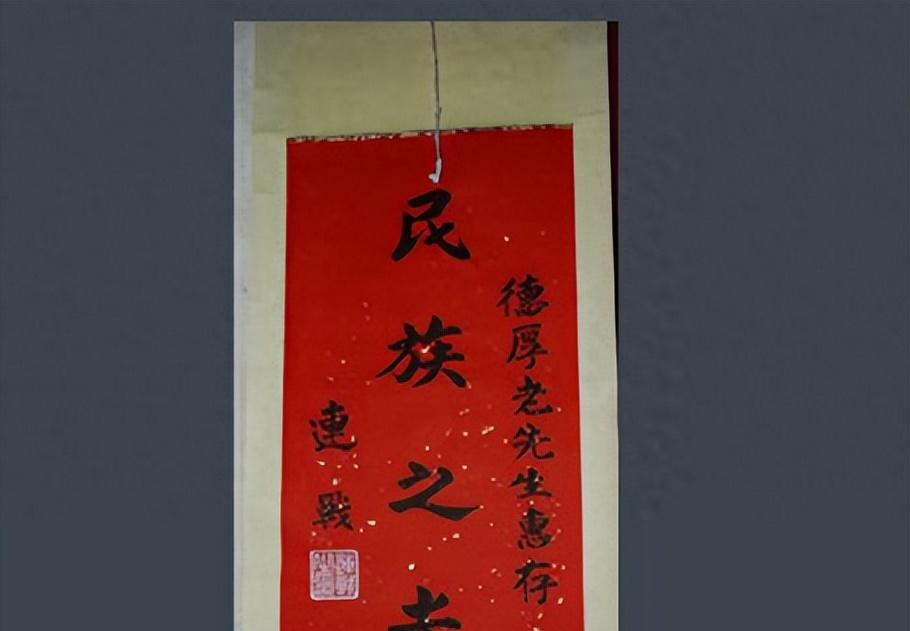 德厚老先生惠存
民族之
連戰